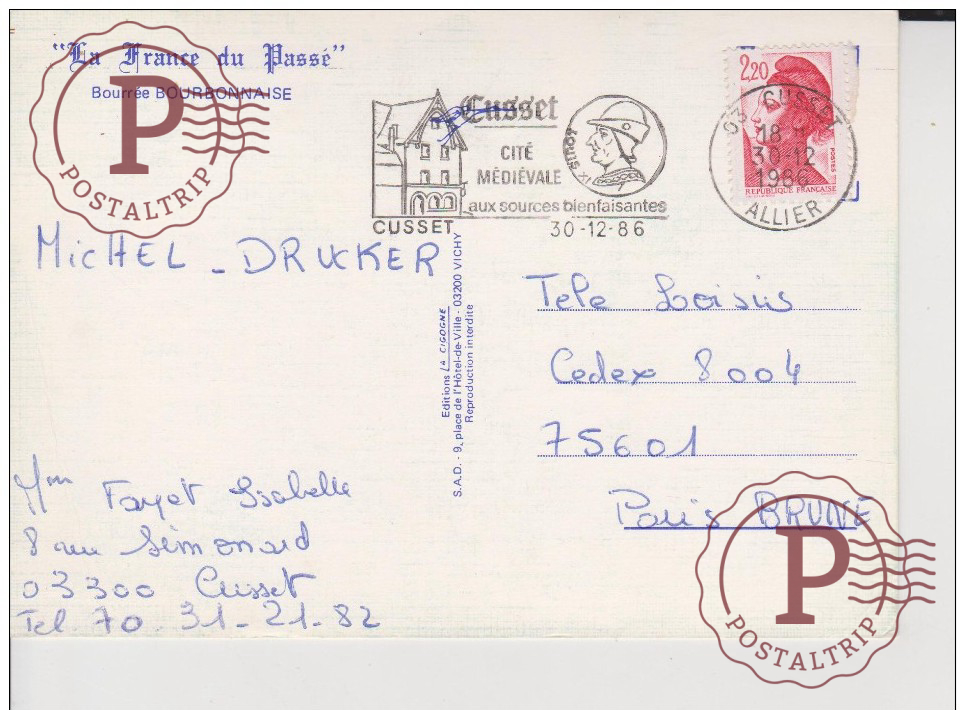 "La France du Passé"
Bourrée BOURBONNAISE
P
POSTALTRIP
Cusset
CITÉ
MÉDIÉVALE
aux sources bienfaisantes
LOUIS XI
CUSSET
30-12-86
2,20
POSTES
REPUBLIQUE FRANÇAISE
03 CUSSET
18 -
30-12
1986
ALLIER
MicHEL - DRUCKER
Editions LA CIGOGNE
S.A.D. - 9, place de l'Hôtel-de-Ville - 03200 VICHY
Reproduction interdite
Tele Loisirs
Cedex 8004
75601
Paris BRUNE
Mme Fayet Isabelle
8 rue Simonard
03300 Cusset
Tel. 70 31-21-82
P
POSTALTRIP